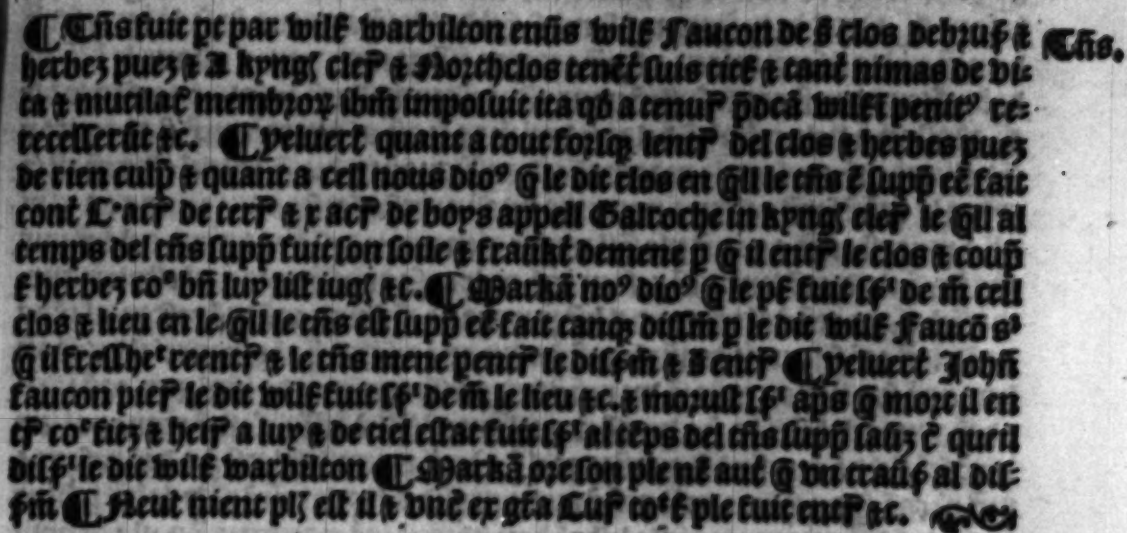 ¶ Trñs fuit pt par will̃ warbilton enũs will̃ Faucon de s̃ clos debrus̃ &
herbez puez & A kyngꝭ cler̃ & Northclos tenẽt̃ suis ticẽ & tant̃ nimas de vi⸗
ta & mutilac̃ membroꝝ ibm̃ imposuit ita qđ a tenur̃ p̃dcã will̃i penitꝰ re⸗
recesserũt &c. ¶ yeluert̃ quant a tout forsqꝫ lentr̃ del clos & herbes puez
de rien culp̃ & quant a cell nous dioꝰ q̃ le dit clos en q̃ll le trñs ẽ supp̃ eẽ fait
cont̃ L. acr̃ de terr̃ & x acr̃ de boys appell Galroche in kyngꝭ cler̃ le q̃ll al
temps del trñs supp̃ fuit son soile & frañkt̃ demene p q̃ il entr̃ le clos & coup̃
lẽ herbez coᵉ bñ luy list iugꝭ &c. ¶ Markã noꝰ dioꝰ q̃ le pl̃ fuit ss̃ꝰ de m̃ cell
clos & lieu en le q̃ll le trñs est supp̃ eẽ fait tanqꝫ dissm̃ p le dit will̃ Faucõ sꝰ
q̃ il fressheᵉ reentr̃ & le trñs mene pentr̃ le dissm̃ & Lentr̃ ¶ yeluert̃ Johñ
faucon pier̃ le dit will̃ fuit ss̃ꝰ de m̃ le lieu &c. & morust ss̃ꝰ aps̃ q̃ mort il en
tr̃ coᵉ fitz & heir̃ a luy & de tiel estat fuit ss̃ꝰ al tẽps del trñs supp̃ sauz c̃ queil
diss̃ꝰ le dit will̃ warbilton ¶ Markã ore son ple nẽ aut̃ q̃ vn trau̇s̃ al dis⸗
sm̃ ¶ Neut nient plꝭ est il & vnc̃ ex gr̃a Lur̃ coᵉ l̃ ple fuit entr̃ &c.
Trñs.